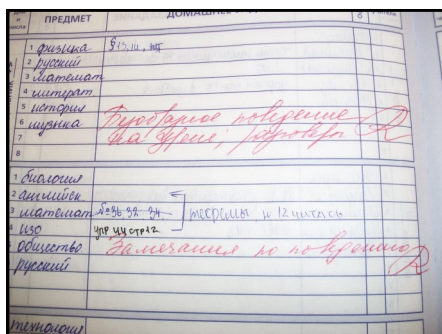 ПРЕДМЕТ
1 физика §13,14,
2 русский
3 математ
4 литерат.
5 история
6 музыка Безобразное поведение
7 на уроке, разговоры
8
1 биология
2 английск
3 математ №36 32 34 теоремы и 12 читать
4 изо упр 44 стр 12
обществo Замечания по поведению
русский
технология